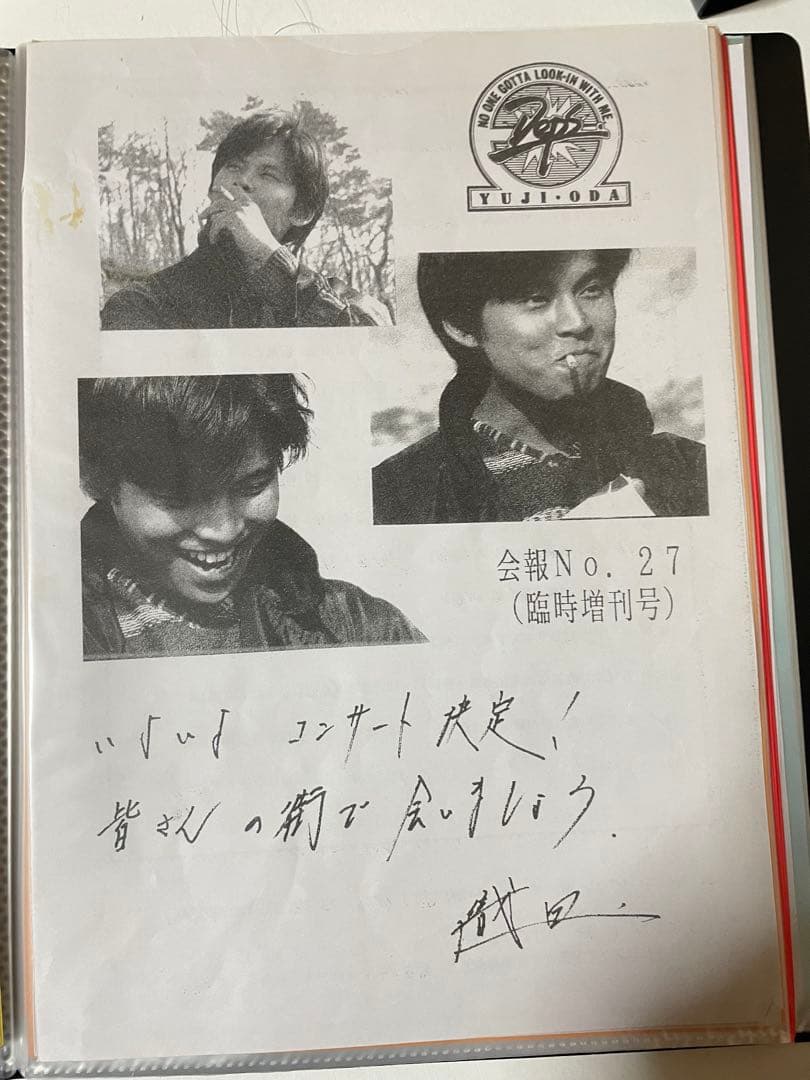 NO ONE GOTTA LOOK-IN WITH ME.
Deps.
YUJI・ODA
会報No. 27
(臨時増刊号)
いよいよ コンサート決定!
皆さんの街で会いましょう.
織田.